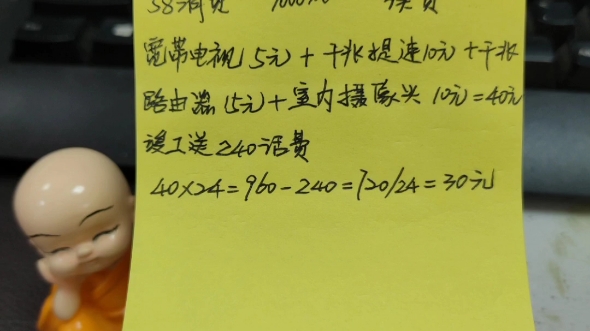 58消费
宽带电视5元+千兆提速10元+千兆
路由器15元+室内摄像头10元=40元
竣工送240话费
40×24=960-240=720/24=30元